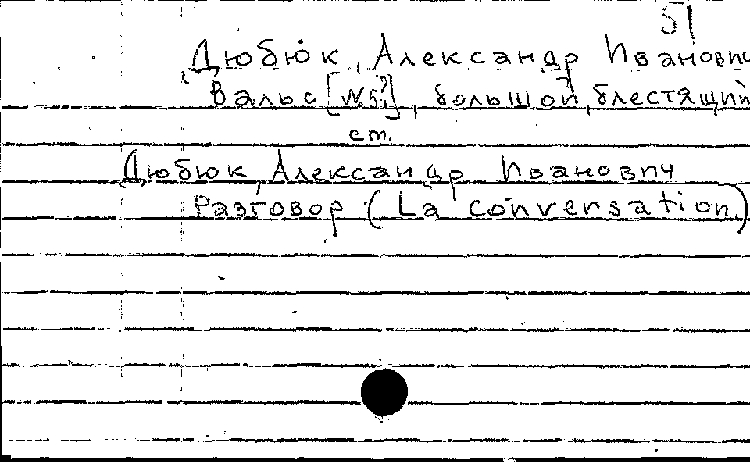 51
Дюбюк, Александр Иванович
Вальс [№5?], большой, блестящий
см.
Дюбюк, Александр Иванович
Разговор (La conversation)